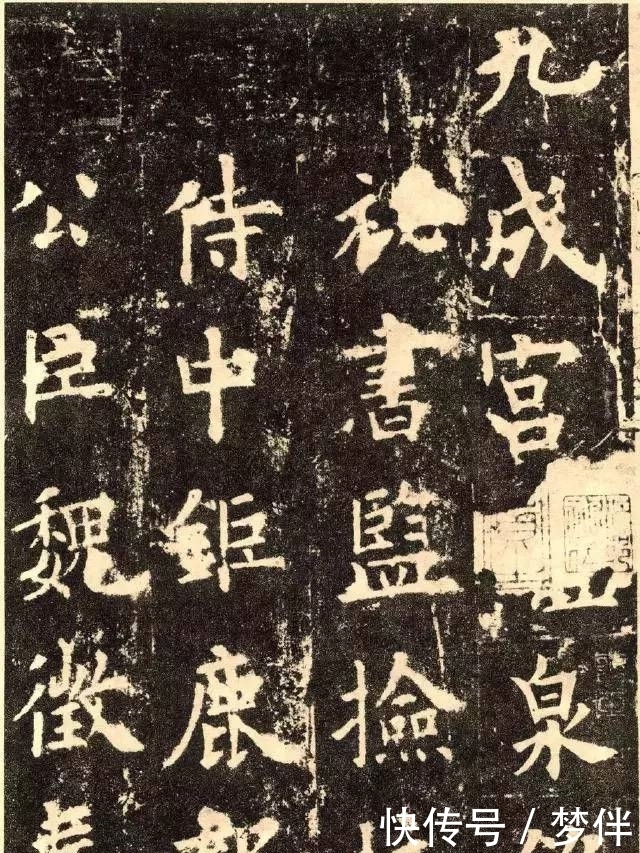 九成宮泉
書監撿
侍中鉅鹿郡
公臣魏徵奉
快传号 / 梦伴